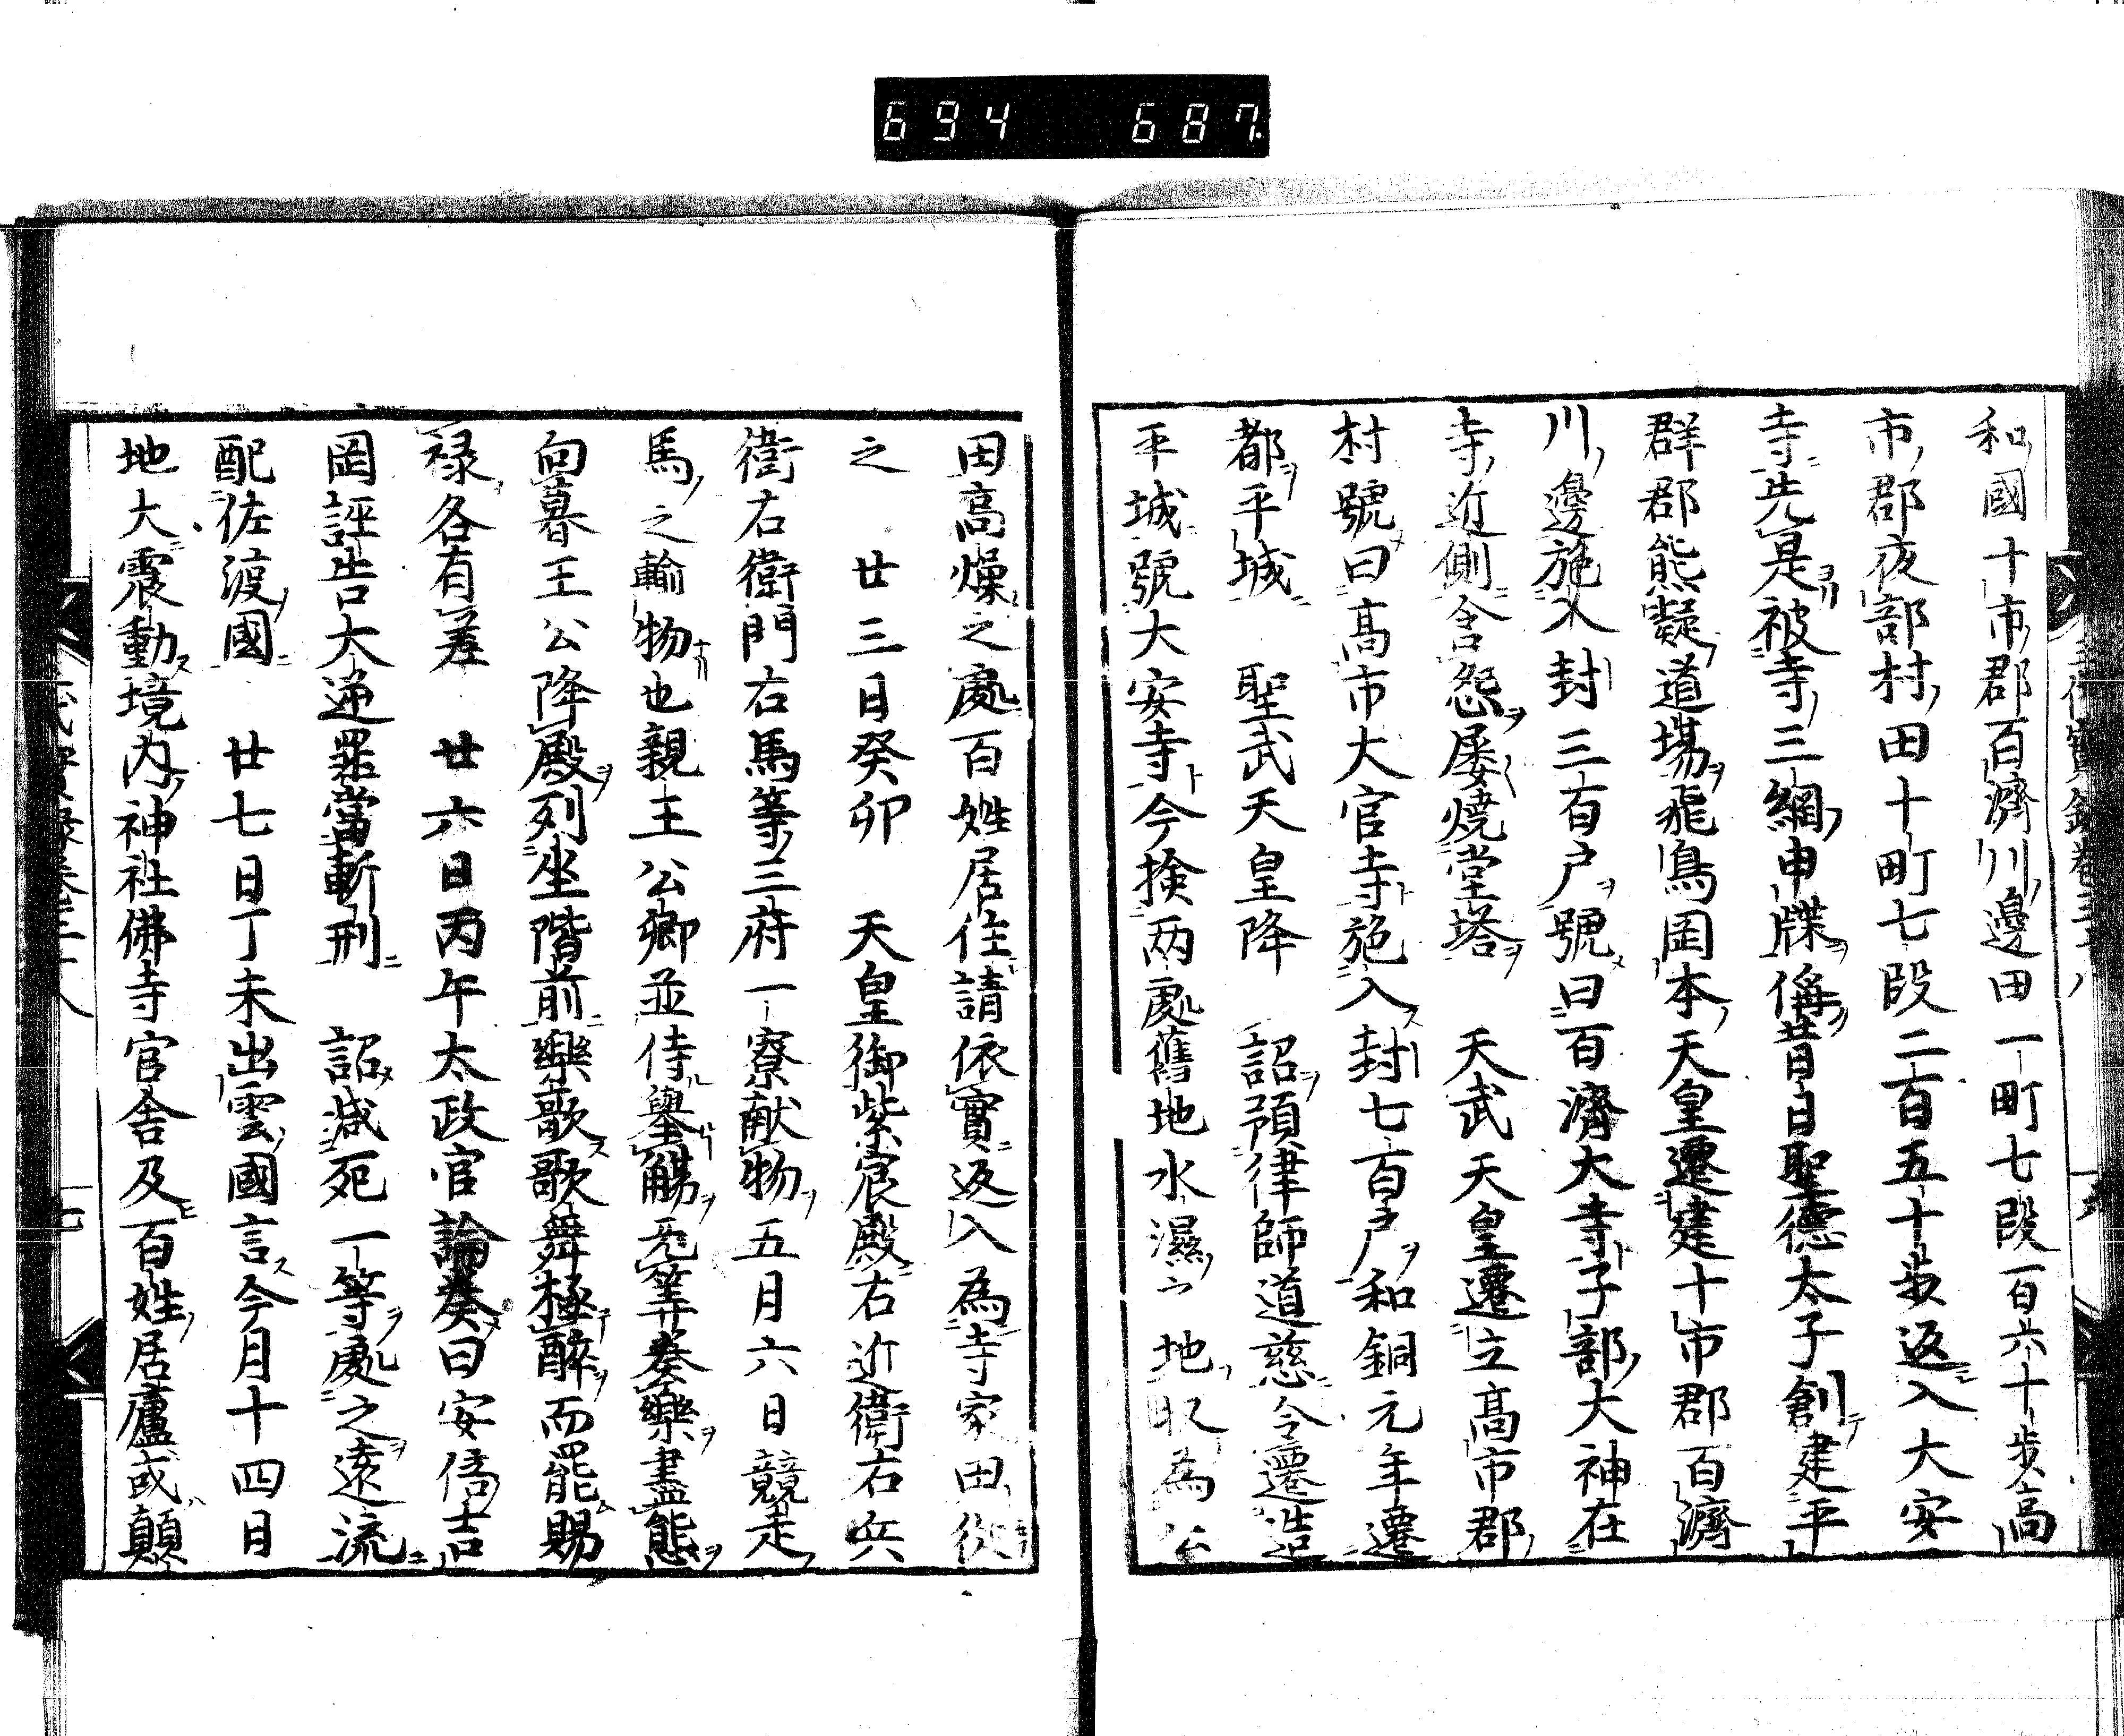 694 687
和國十市郡百濟川邊田一町七段百六十步高
市郡夜部村田十町七段二百五十步返入大安
寺先是被寺三綱申牒偁昔日聖德太子創建平
群郡熊凝道場飛鳥岡本天皇遷建十市郡百濟
川邊施入封三百戸號曰百濟大寺子部大神在
寺近側含怨屡燒堂塔　天武天皇遷立高市郡
村號曰高市大官寺施入封七百戸和銅元年遷
都平城　聖武天皇降　詔預律師道慈令遷造
平城號大安寺今撿兩處舊地水濕之地収為公
田高燥之處百姓居住請依實返入為寺家田從
之　廿三日癸卯　天皇御紫宸殿右近衛右兵
衛右衛門右馬等三府一寮献物五月六日競走
馬之輸物也親王公卿並侍擧觴无筭奏樂盡態
向暮王公降殿列坐階前樂歌歌舞極醉而罷賜
禄各有差　廿六日丙午太政官論奏曰安倍吉
岡誣告大逆罪當斬刑　詔減死一等處之遠流
配佐渡國　廿七日丁未出雲國言今月十四日
地大震動境内神社佛寺官舎及百姓居廬或顛